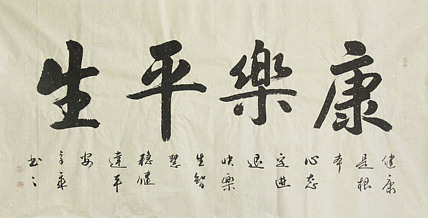 康樂平生
健康
是根
本
心态
定进
退
快樂
生智
慧
穩健
達平
安